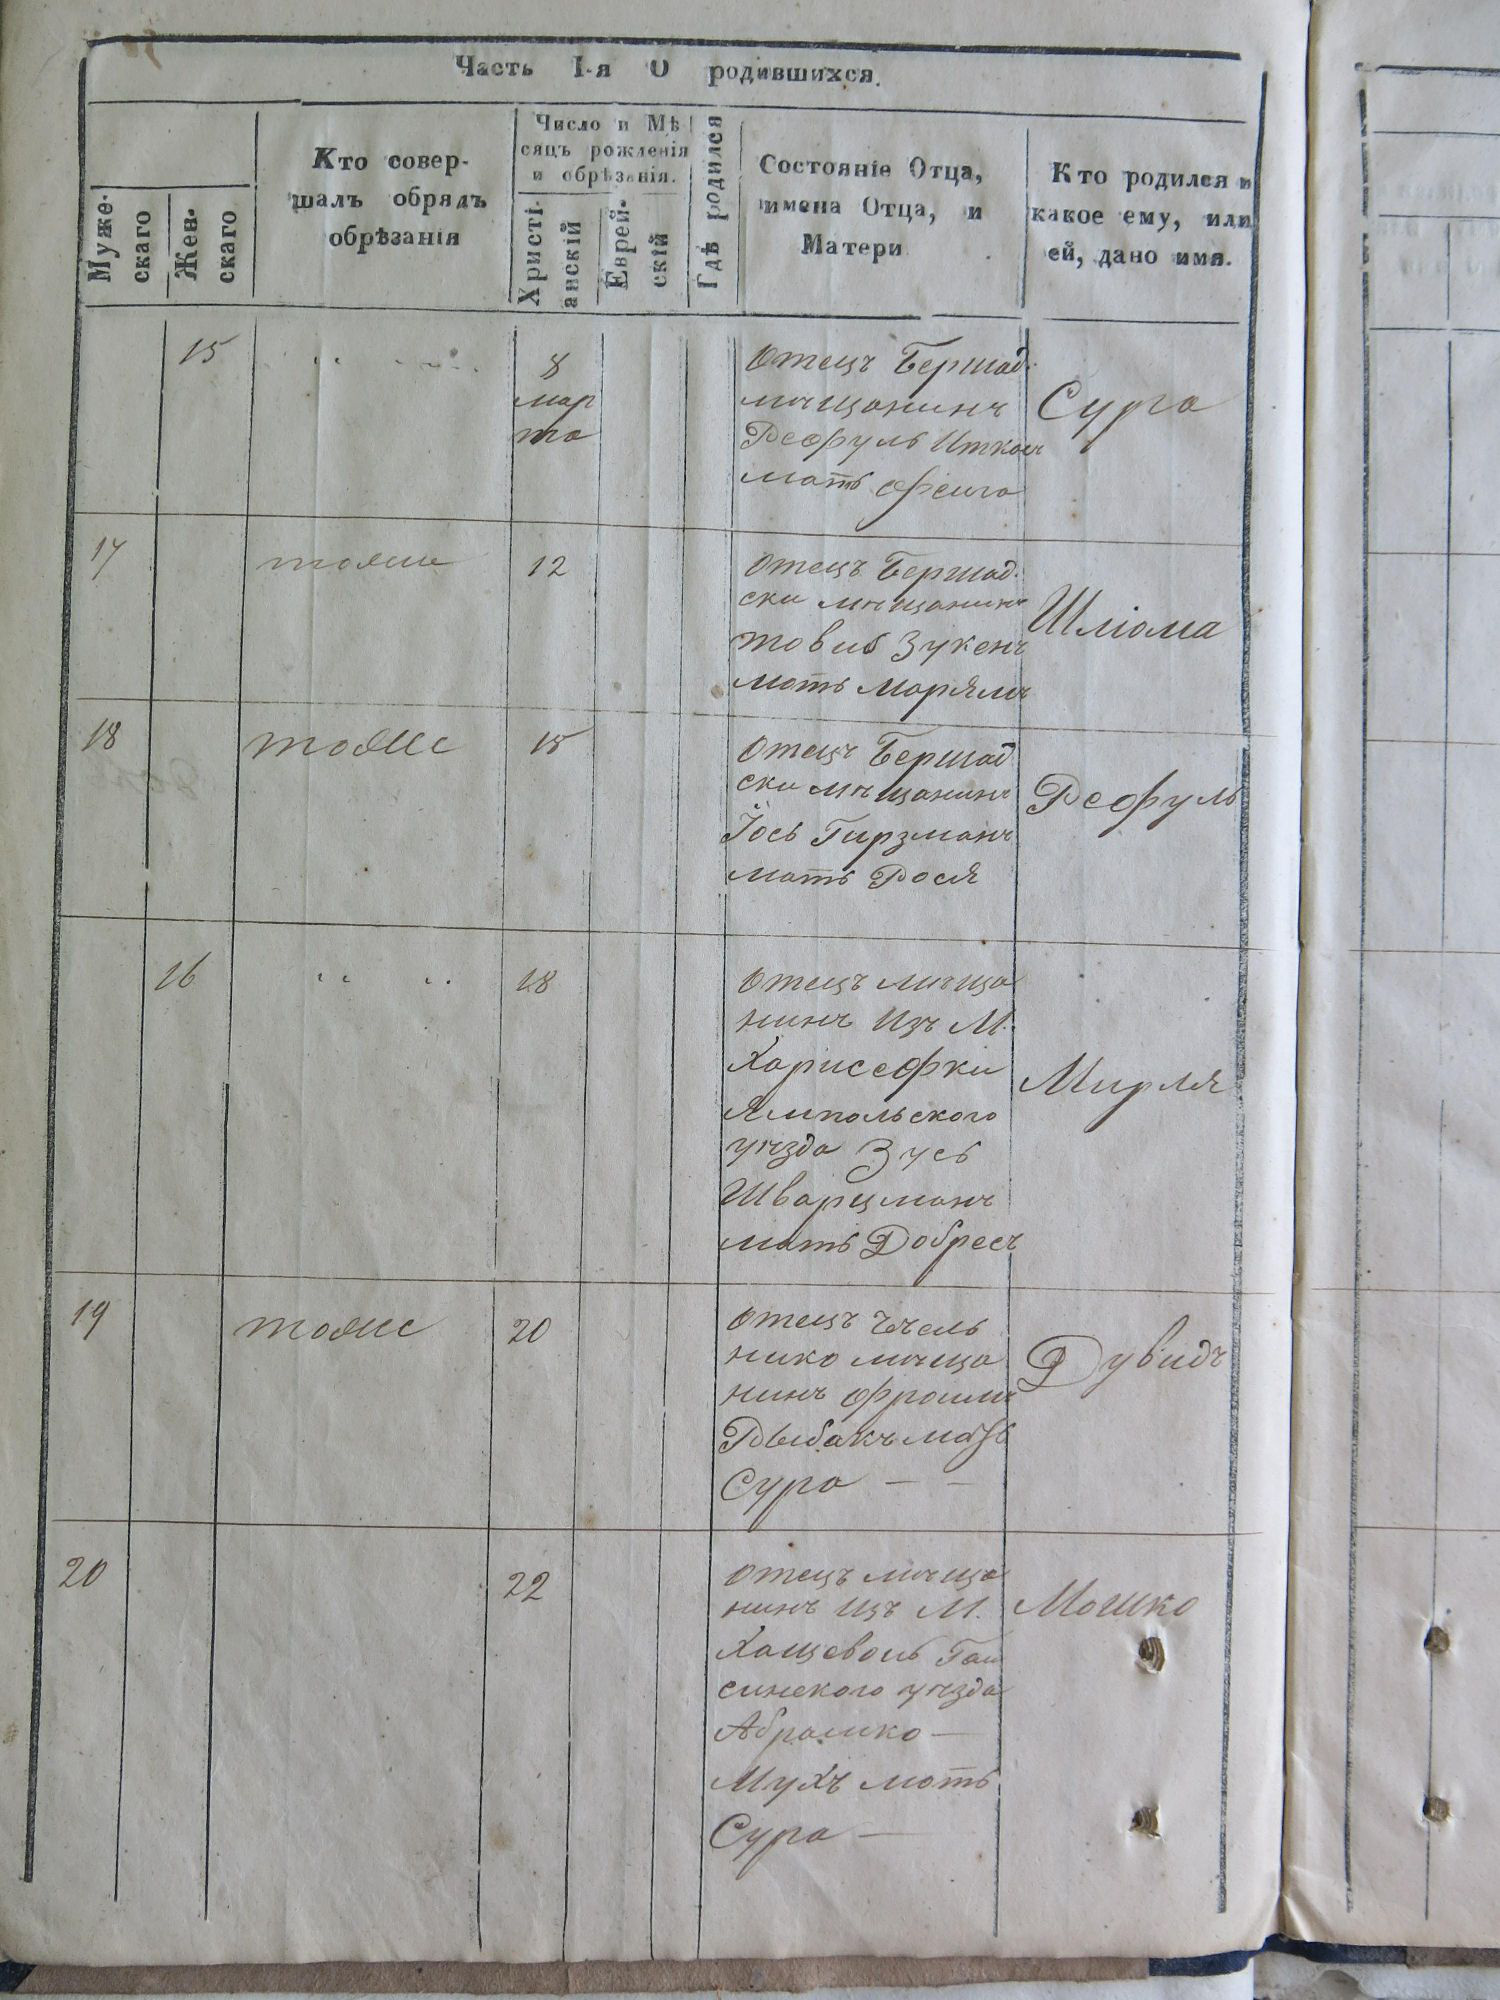 Часть I-я О родившихся.
Муже-
скаго
Жен-
скаго
Кто совер-
шалъ обрядъ
обрѣзанія
Число и Мѣ
сяцъ рожденія
и обрѣзанія.
Христі-
анскій
Еврей-
скій
Гдѣ родился
Состояніе Отца,
имена Отца, и
Матери
Кто родился и
какое ему, или
ей, дано имя.
15
8
мар
та
Отецъ Бершад.
мѣщанинъ
Рефуль
мать Феига
Сура
17
тоже
12
Отецъ Бершад.
ски мѣщанинъ
Товиб Зукенъ
мать Марямъ
Шліома
18
тоже
15
Отецъ Бершад
ски мѣщанинъ
Іось Гирзманъ
мать Рося
Рефуль
16
18
Отецъ мѣща
нинъ Изъ М.
Хариесфки
Ямпольского
уѣзда Зусь
Шварцманъ
мать Добресъ
Мирля
19
тоже
20
Отецъ Чечель
нико мѣща
нинъ Фроимъ
Рыбакъ мать
Сура — —
Дувидъ
20
22
Отецъ мѣща
нинъ Изъ М.
Хащеволь Гаи
синского уѣзда
Абрамко —
Мухъ мать
Сура —
Мошко